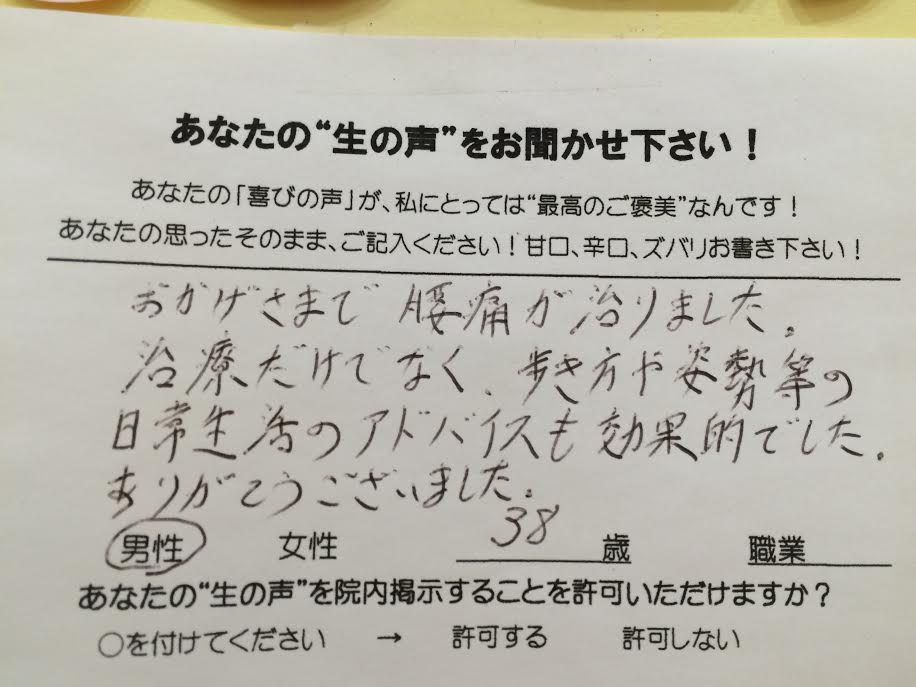 あなたの“生の声”をお聞かせ下さい！
あなたの「喜びの声」が、私にとっては“最高のご褒美”なんです！
あなたの思ったそのまま、ご記入ください！甘口、辛口、ズバリお書き下さい！
おかげさまで 腰痛が治りました。
治療だけでなく、歩き方や姿勢等の
日常生活のアドバイスも効果的でした。
ありがとうございました。
男性 女性 38 歳 職業
あなたの“生の声”を院内掲示することを許可いただけますか？
○を付けてください → 許可する 許可しない